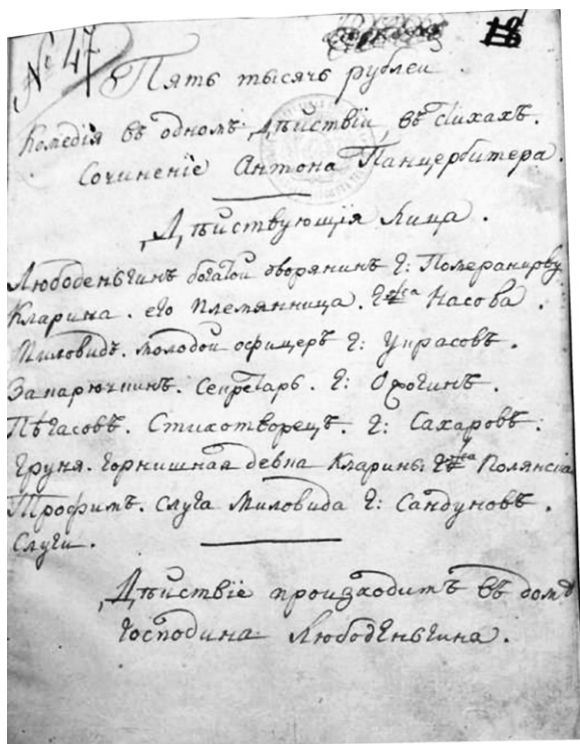 № 47
Пять тысячь рублеи.
Комедія въ одномъ Дѣиствіи, въ стихахъ.
Сочиненіе Антона Панцербитера.
Дѣиствующія Лица.
Любоденьгинъ богатои дворянинъ Г: Померанцеву
Кларина. его племянница. Насова.
Миловидъ. молодои офицеръ Г: Украсовъ.
Секретарь. Г:
Пѣгасовъ. Стихотворецъ. Г: Сахаровъ:
Груня. горнишная девка Кларины.
Трофимъ. слуга Миловида Г: Сандуновъ.
Слуги.
Дѣиствіе произходитъ въ домѣ
Господина Любоденьгина.